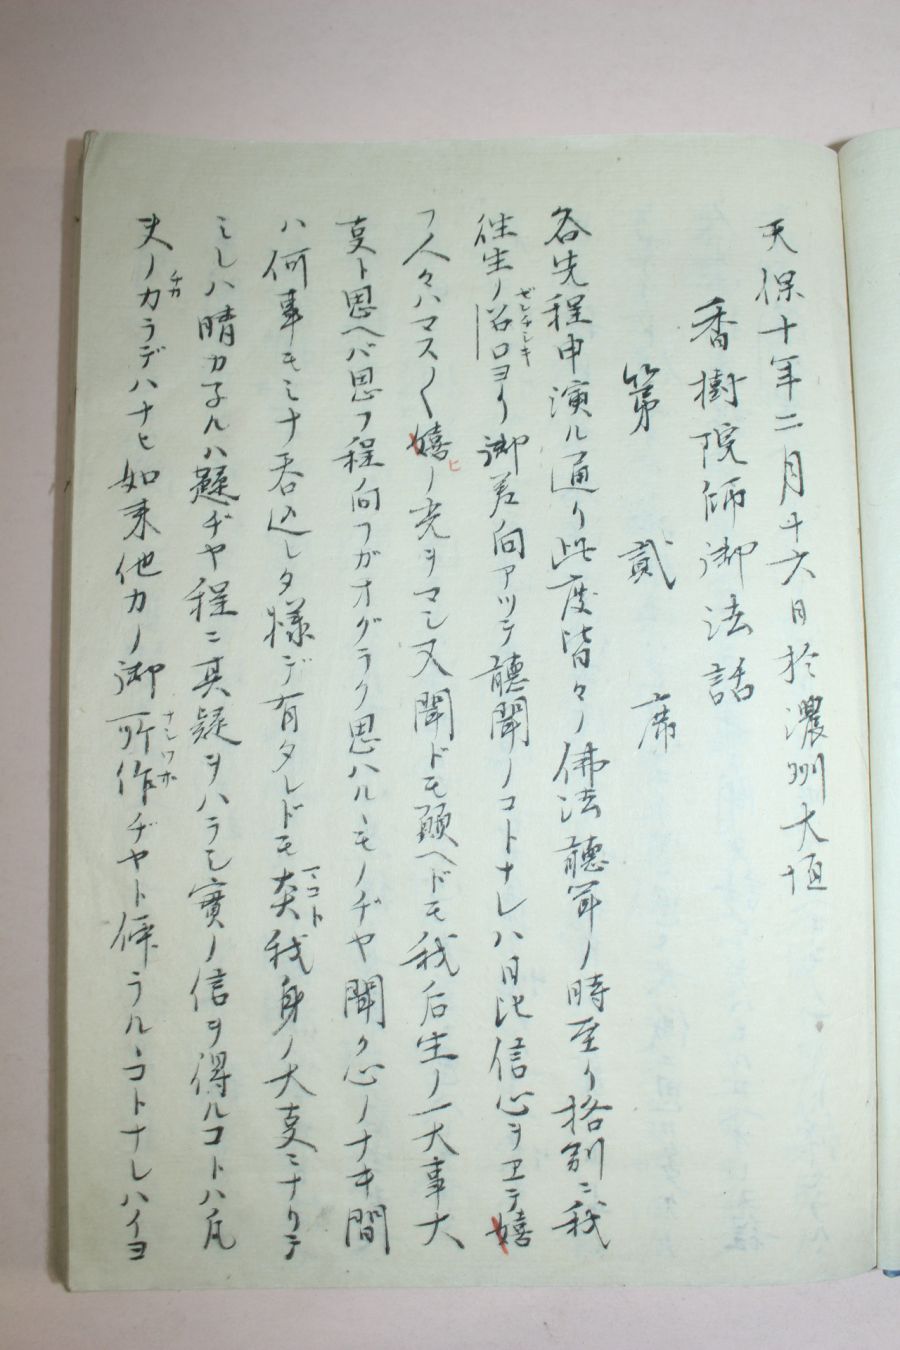 天保十年二月十六日於濃州大垣
香樹院師御法話
第貳席
各先程申演ル通リ此度皆々ノ佛法聽聞ノ時至リ格別ニ我
往生ノ ヨリ御差向アツテ聽聞ノコトナレハ日比信心ヲヱテ嬉
フ人々ハマス〱嬉ヒノ光ヲマシ又聞ドモ願ヘドモ我后生ノ一大事大
叓ト思ヘバ思フ程向フガオグラク思ハルヽモノヂヤ聞ク心ノナキ間
ハ何事モミナ呑込シタ様デ有タレドモ 我身ノ大叓ニナリテ
ミレハ晴カ子ルハ疑ヂヤ程ニ其疑ヲハラシ實ノ信ヲ得ルコトハ凡
夫ノカラデハナヒ如来他力ノ御所作ヂヤト候ラルヽコトナレハイヨ
チカ
マコト